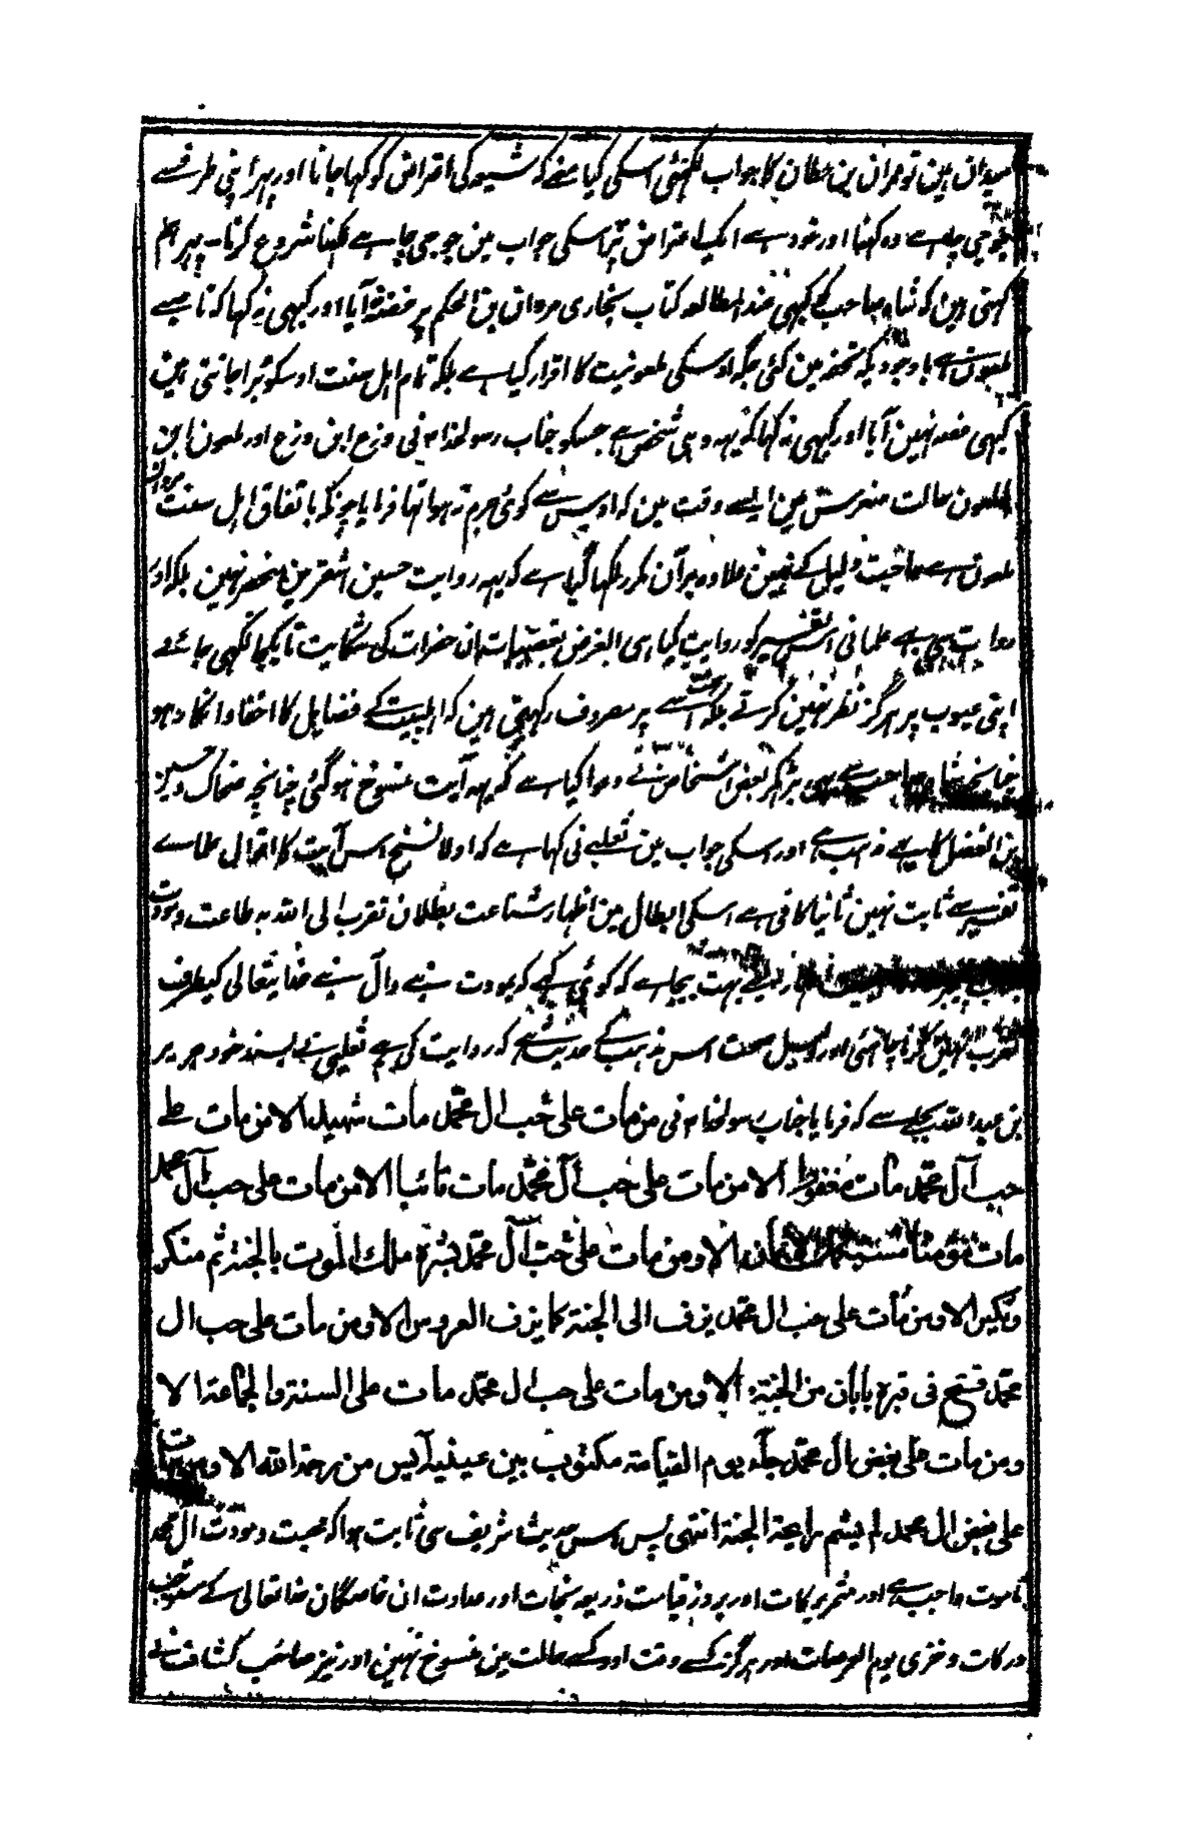 میدان ہین تو عمران بن حطان کا جواب لکہتی اسکی کیا معنے کہ شیعہ کی اعتراض کو کہا جانا اور پہر اپنی طرفسے
جو جی چاہے وہ کہنا اور خود سے ایک اعتراض پر اسکی جواب مین جو جی چاہے لکہنا شروع کرنا۔ پہر ہم
کہتی ہین کہ شاہ صاحب کو کبہی عند المطالعہ کتاب بخاری مروان بن الحکم پر غصہ نہ آیا اور کبہی نہ کہا کہ ناصبے
ملعون ہے باوجودیکہ تحفہ مین کئی جگہ اوسکی ملعونیت کا اقرار کیا ہے بلکہ تمام اہل سنت اوسکو برا جانتی ہین
کبہی غصہ نہین آیا اور کبہی نہ کہا کہ یہہ وہی شخص ہے جسکو جناب رسولخدا نی وزغ ابن وزغ اور ملعون ابن
الملعون حالت صغر سن مین ایسے وقت مین کہ اوس سے کوئی جرم نہ ہوا تہا فرمایا چونکہ باتفاق اہل سنت مروان
ملعون ہے حاجت دلیل کے نہین علاوہ برآن مکرر لکہا گیا ہے کہ یہہ روایت حسین اشقر مین منحصر نہین بلکہ اور
روایت سی ہے علمانی اس تفسیر کو روایت کیا ہی الغرض تعصبات ان حضرات کی شکایت تا کجا لکہی جائے
اپنی عیوب پر ہرگز نظر نہین کرتے بلکہ ہمت اسے پر مصروف رکہتی ہین کہ اہلبیت کے فضایل کا اخفا و انکار ہو
چنانچہ شاہ صاحب سے بہی بڑہکر بعض اشخاص نے دعوا کیا ہے کہ یہہ آیت منسوخ ہوگئی چنانچہ ضحاک و حسین
بن الفضل کا یہے مذہب ہے اور اسکی جواب مین ثعلبے نی کہا ہے کہ اولا نسخ اس آیت کا اقوال علماے
تفسیر سے ثابت نہین ثانیا کافی ہے اسکی ابطال مین اظہار شناعت بطلان تقرب الی اللہ بہ طاعت و مودت
بہت بیجا ہے کہ کوئی کہے کہ بمودت نبے و آل نبے خدایتعالی کیطرف
تقرب نہین کرنا چاہئی اور دلیل صحت اس مذہب کے حدیث ہے کہ روایت کی ہے ثعلبی نے بسند خود جریر
بن عبد اللہ بجلے سے کہ فرمایا جناب رسولخدا نی من مات علی حب ال محمد مات شہیدا الا من مات علے
حب آل محمد مات مغفورا الا من مات علی حب آل محمد مات تائبا الا من مات علی حب آل محمد
مات مؤمنا مستکمل الایمان الا ومن مات علی حب آل محمد بشرہ ملک الموت بالجنۃ ثم منکر
ونکیر الا ومن مات علی حب ال محمد یزف الی الجنۃ کما یزف العروس الا ومن مات علی حب ال
محمد فتح فی قبرہ بابان من الجنۃ الا ومن مات علی حب ال محمد مات علی السنۃ والجماعۃ الا
ومن مات علی بغض ال محمد جاء یوم القیامۃ مکتوب بین عینیہ آیس من رحمۃ اللہ الا ومن مات
علی بغض ال محمد لم یشم رایحۃ الجنۃ انتہی پس اس حدیث شریف سی ثابت ہوا کہ محبت و مودت ال محمد
تا موت واجب ہے اور مثمر برکات اور بروز قیامت ذریعہ نجات اور عداوت ان خاصگان خدا تعالی کے مستوجب
درکات و خزی یوم العرصات اور ہرگز کسے وقت اور کسے حالت مین منسوخ نہین اور نیز صاحب کشاف نے